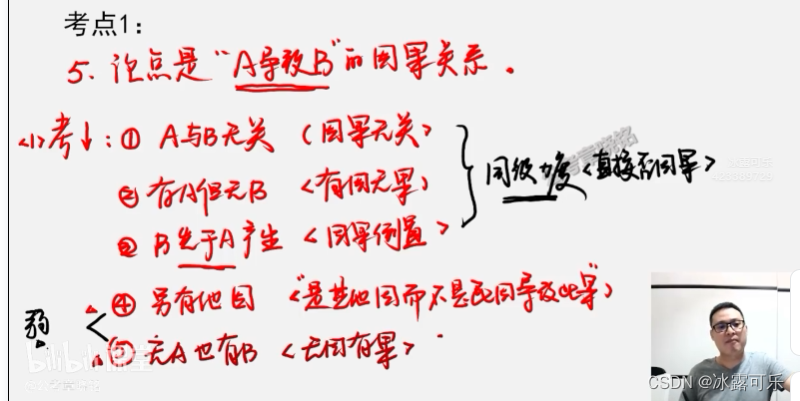 考点1：
5. 论点是“A导致B”的因果关系。
<1>考↓：① A与B无关 <因果无关>
② 有A但无B <有因无果>
③ B先于A产生 <因果倒置>
同级力度 <直接否因果>
④ 另有他因 “是其他因而不是此因导致此果”
弱
⑤ 无A也有B <无因有果>
bilibili课堂
CSDN @冰露可乐